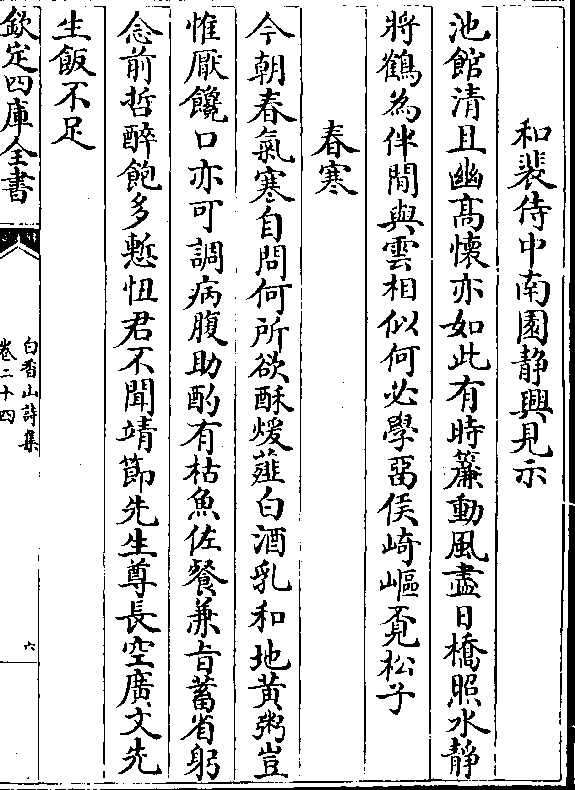 和裴侍中南園静興見示
池館清且幽髙懐亦如此有時簾動風盡日橋照水靜
將鶴為伴閒與雲相似何必學留侯崎嶇覔松子
春寒
今朝春氣寒自問何所欲酥煖薤白酒乳和地黄粥豈
惟厭饞口亦可調病腹助酌有枯魚佐餐兼㫖蓄省躬
念前哲醉飽多慙忸君不聞靖節先生尊長空廣文先
生飯不足
欽定四庫全書
白香山詩集
卷二十四
六